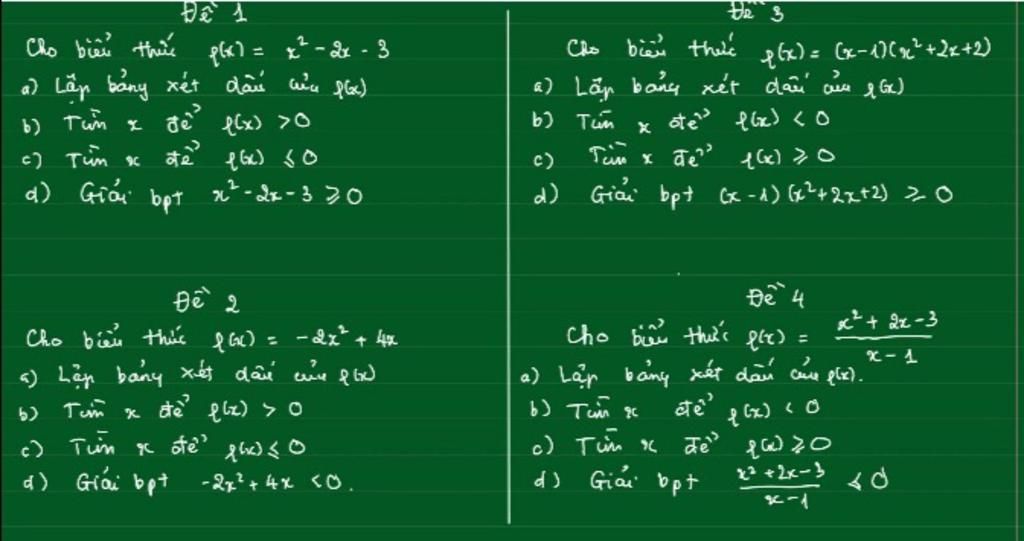 Đề 1
Cho biểu thức f(x) = x² - 2x - 3
a) Lập bảng xét dấu của f(x)
b) Tìm x để f(x) > 0
c) Tìm x để f(x) ≤ 0
d) Giải bpt x² - 2x - 3 ≥ 0
Đề 2
Cho biểu thức f(x) = -2x² + 4x
a) Lập bảng xét dấu của f(x)
b) Tìm x để f(x) > 0
c) Tìm x để f(x) ≤ 0
d) Giải bpt -2x² + 4x < 0.
Đề 3
Cho biểu thức f(x) = (x-1)(x²+2x+2)
a) Lập bảng xét dấu của f(x)
b) Tìm x để f(x) < 0
c) Tìm x để f(x) ≥ 0
d) Giải bpt (x-1)(x²+2x+2) ≥ 0
Đề 4
Cho biểu thức f(x) = (x² + 2x - 3)/(x - 1)
a) Lập bảng xét dấu của f(x).
b) Tìm x để f(x) < 0
c) Tìm x để f(x) ≥ 0
d) Giải bpt (x² + 2x - 3)/(x - 1) ≤ 0